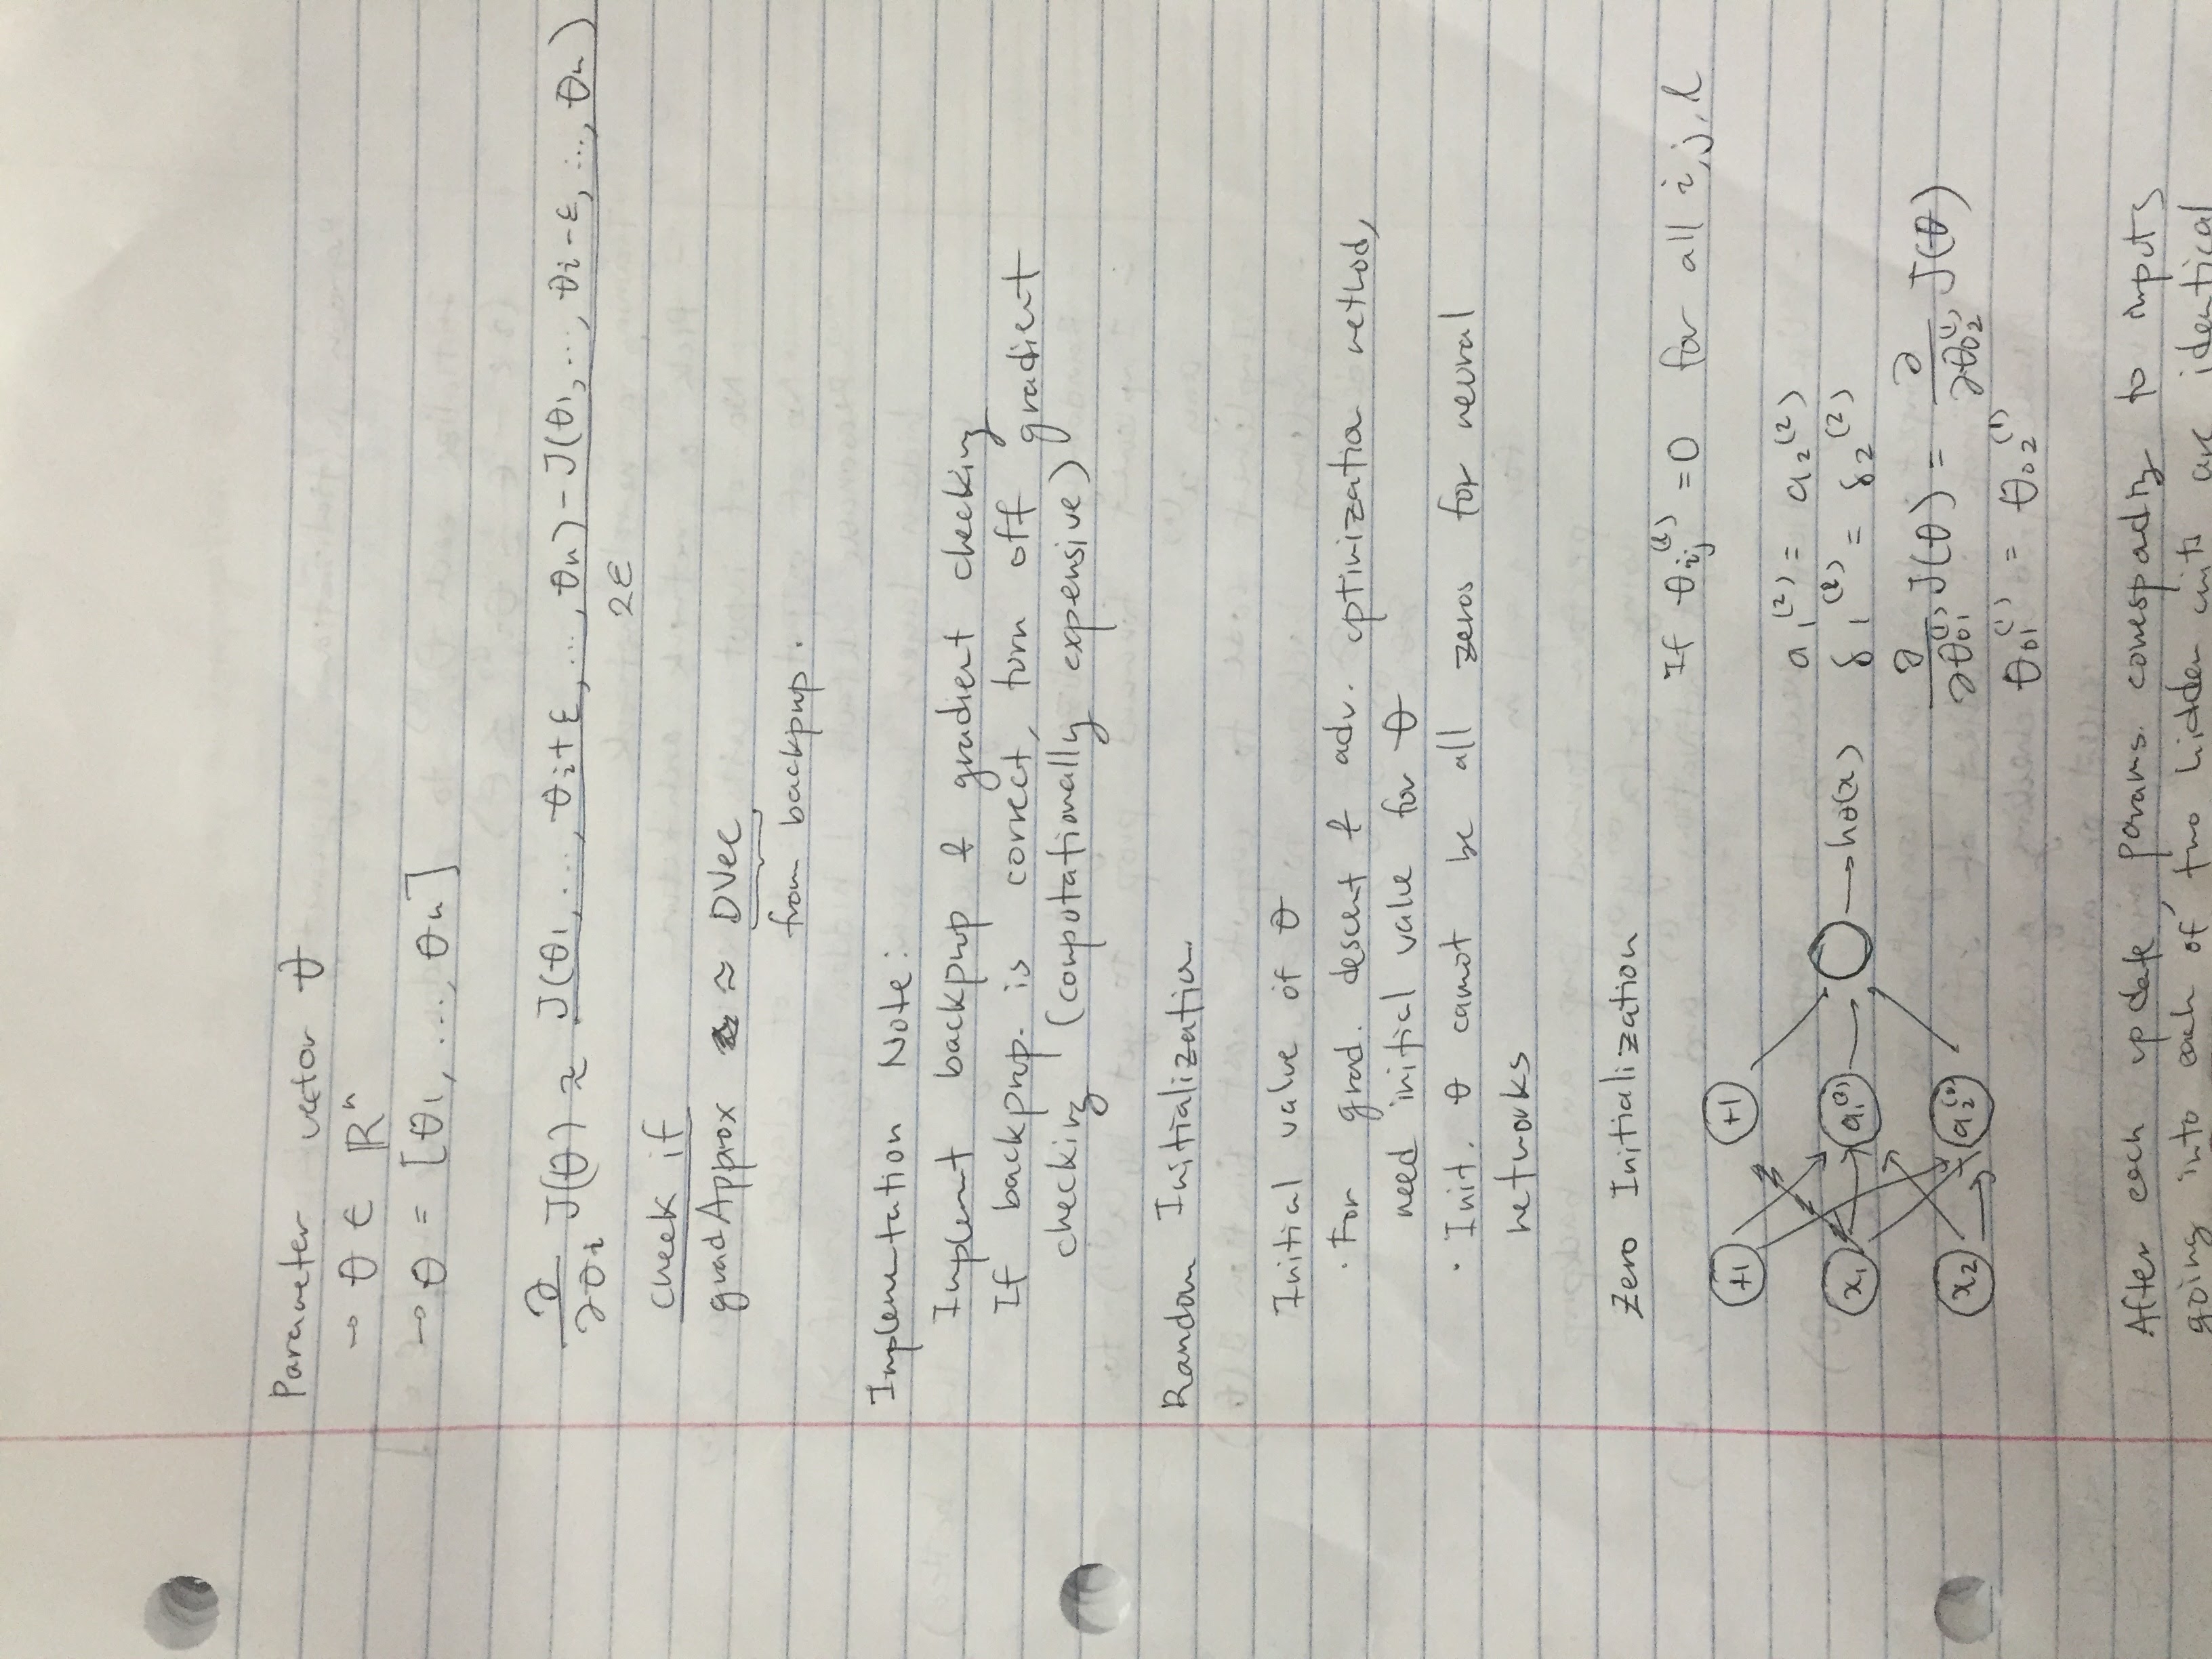 Parameter vector θ
→ θ ∈ ℝⁿ
→ θ = [θ₁, ..., θₙ]
∂/∂θᵢ J(θ) ≈ (J(θ₁, ..., θᵢ+ε, ..., θₙ) - J(θ₁, ..., θᵢ-ε, ..., θₙ)) / 2ε
check if
gradApprox ≈ DVec
from backprop.
Implementation Note:
Implement backprop & gradient checking
If backprop. is correct, turn off gradient
checking (computationally expensive)
Random Initialization
Initial value of θ
· For grad. descent & adv. optimization method,
need initial value for θ
· Init. θ cannot be all zeros for neural
networks
Zero Initialization
If θᵢⱼ⁽ˡ⁾ = 0 for all i, j, l
+1 +1
a₁⁽²⁾ = a₂⁽²⁾
x₁ a₁⁽²⁾ → hθ(x)
δ₁⁽²⁾ = δ₂⁽²⁾
∂/∂θ₀₁⁽¹⁾ J(θ) = ∂/∂θ₀₂⁽¹⁾ J(θ)
x₂ a₂⁽²⁾
θ₀₁⁽¹⁾ = θ₀₂⁽¹⁾
After each update, params. corresponding to inputs
going into each of two hidden units are identical